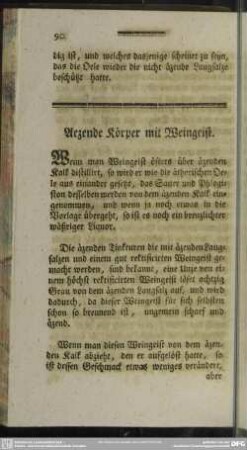 90
dig ist, und welches dasjenige scheinet zu seyn,
das die Oele wieder die nicht äzende Laugsalze
beschützt hatte.
Aezende Körper mit Weingeist.
Wenn man Weingeist öfters über äzenden
Kalk distillirt, so wird er wie die ätherischen Oe-
le aus einander gesetzt, das Saure und Phlogi-
ston desselben werden von dem äzenden Kalk ein-
genommen, und wenn ja noch etwas in die
Vorlage übergeht, so ist es noch ein brenzlichter
wäßriger Liquor.
Die äzenden Tinkturen die mit äzenden Laug-
salzen und einem gut rektificirten Weingeist ge-
macht werden, sind bekannt, eine Unze von ei-
nem höchst rektificirten Weingeist löset achtzig
Gran von dem äzenden Laugsalz auf, und wird
dadurch, da dieser Weingeist für sich selbsten
schon so brennend ist, ungemein scharf und
äzend.
Wenn man diesen Weingeist von dem äzen-
den Kalk abzieht, den er aufgelöst hatte, so
ist dessen Geschmack etwas weniges verändert,
aber